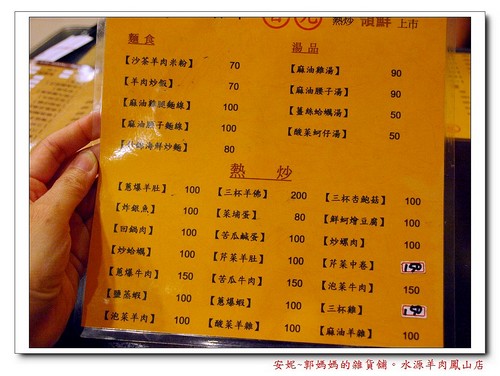 熱炒 領鮮 上市
麵食
湯品
【沙茶羊肉米粉】 70
【麻油雞湯】 90
【羊肉炒飯】 70
【麻油腰子湯】 90
【麻油雞腿麵線】 100
【薑絲蛤蠣湯】 50
【麻油腰子麵線】 100
【酸菜蚵仔湯】 50
海鮮炒麵】 80
熱炒
【蔥爆羊肚】 100 【三杯羊佛】 200 【三杯杏鮑菇】 100
【炸銀魚】 100 【菜埔蛋】 80 【鮮蚵燴豆腐】 100
【回鍋肉】 100 【苦瓜鹹蛋】 100 【炒螺肉】 100
【炒蛤蠣】 100 【芹菜羊肚】 100 【芹菜中卷】 150
【蔥爆牛肉】 150 【苦瓜牛肉】 150 【泡菜牛肉】 150
【鹽蒸蝦】 100 【蔥爆蝦】 100 【三杯雞】 150
【泡菜羊肉】 100 【酸菜羊雜】 100 【麻油羊雜】 100
安妮-郭媽媽的雜貨舖。水源羊肉鳳山店